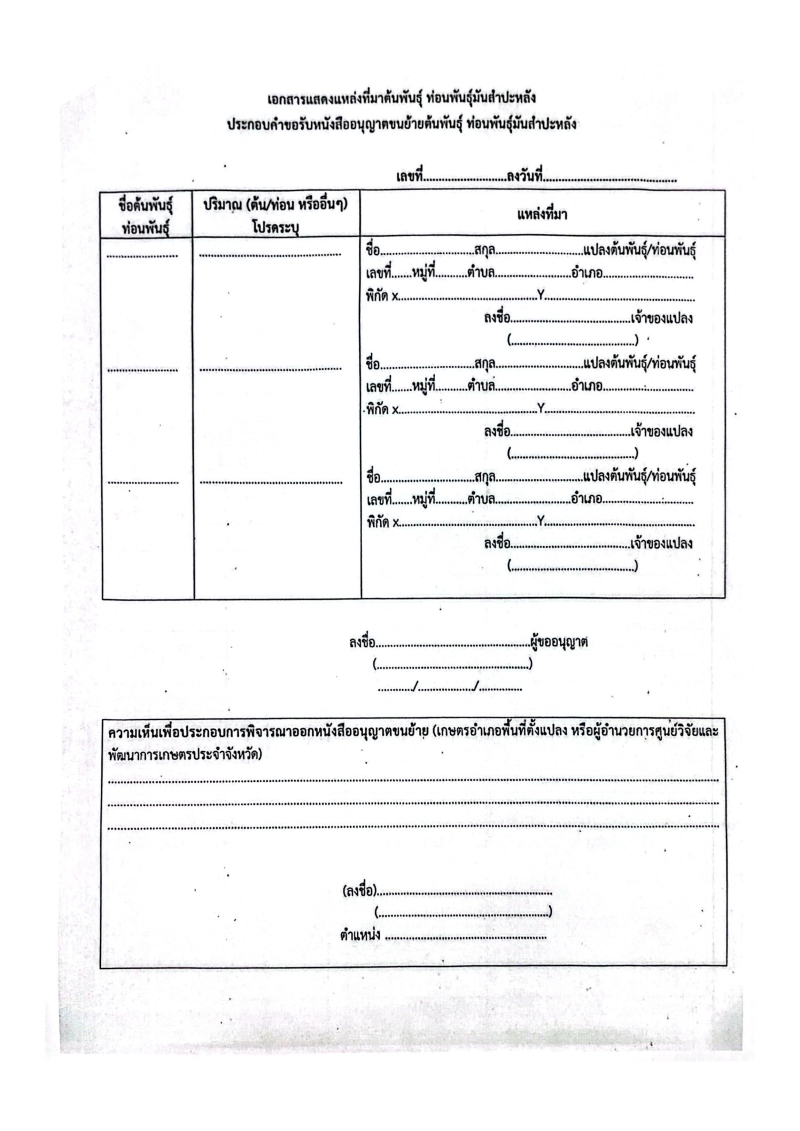 เอกสารแสดงแหล่งที่มาต้นพันธุ์ ท่อนพันธุ์มันสำปะหลัง
ประกอบคำขอรับหนังสืออนุญาตขนย้ายต้นพันธุ์ ท่อนพันธุ์มันสำปะหลัง
เลขที่..........................ลงวันที่..........................................
ชื่อต้นพันธุ์ ปริมาณ (ต้น/ท่อน หรืออื่นๆ) แหล่งที่มา
ท่อนพันธุ์ โปรดระบุ
...................... ............................................ ชื่อ.............................สกุล...........................แปลงต้นพันธุ์/ท่อนพันธุ์
เลขที่.......หมู่ที่..........ตำบล........................อำเภอ............................
พิกัด x...........................................Y...............................................
ลงชื่อ......................................เจ้าของแปลง
(.......................................)
...................... ............................................ ชื่อ.............................สกุล...........................แปลงต้นพันธุ์/ท่อนพันธุ์
เลขที่.......หมู่ที่..........ตำบล........................อำเภอ............................
พิกัด x...........................................Y...............................................
ลงชื่อ......................................เจ้าของแปลง
(.......................................)
...................... ............................................ ชื่อ.............................สกุล...........................แปลงต้นพันธุ์/ท่อนพันธุ์
เลขที่.......หมู่ที่..........ตำบล........................อำเภอ............................
พิกัด x...........................................Y...............................................
ลงชื่อ......................................เจ้าของแปลง
(.......................................)
ลงชื่อ................................................ผู้ขออนุญาต
(................................................)
.........../................../..............
ความเห็นเพื่อประกอบการพิจารณาออกหนังสืออนุญาตขนย้าย (เกษตรอำเภอพื้นที่ตั้งแปลง หรือผู้อำนวยการศูนย์วิจัยและ
พัฒนาการเกษตรประจำจังหวัด)
....................................................................................................
....................................................................................................
....................................................................................................
(ลงชื่อ)......................................................
(.....................................................)
ตำแหน่ง ..................................................